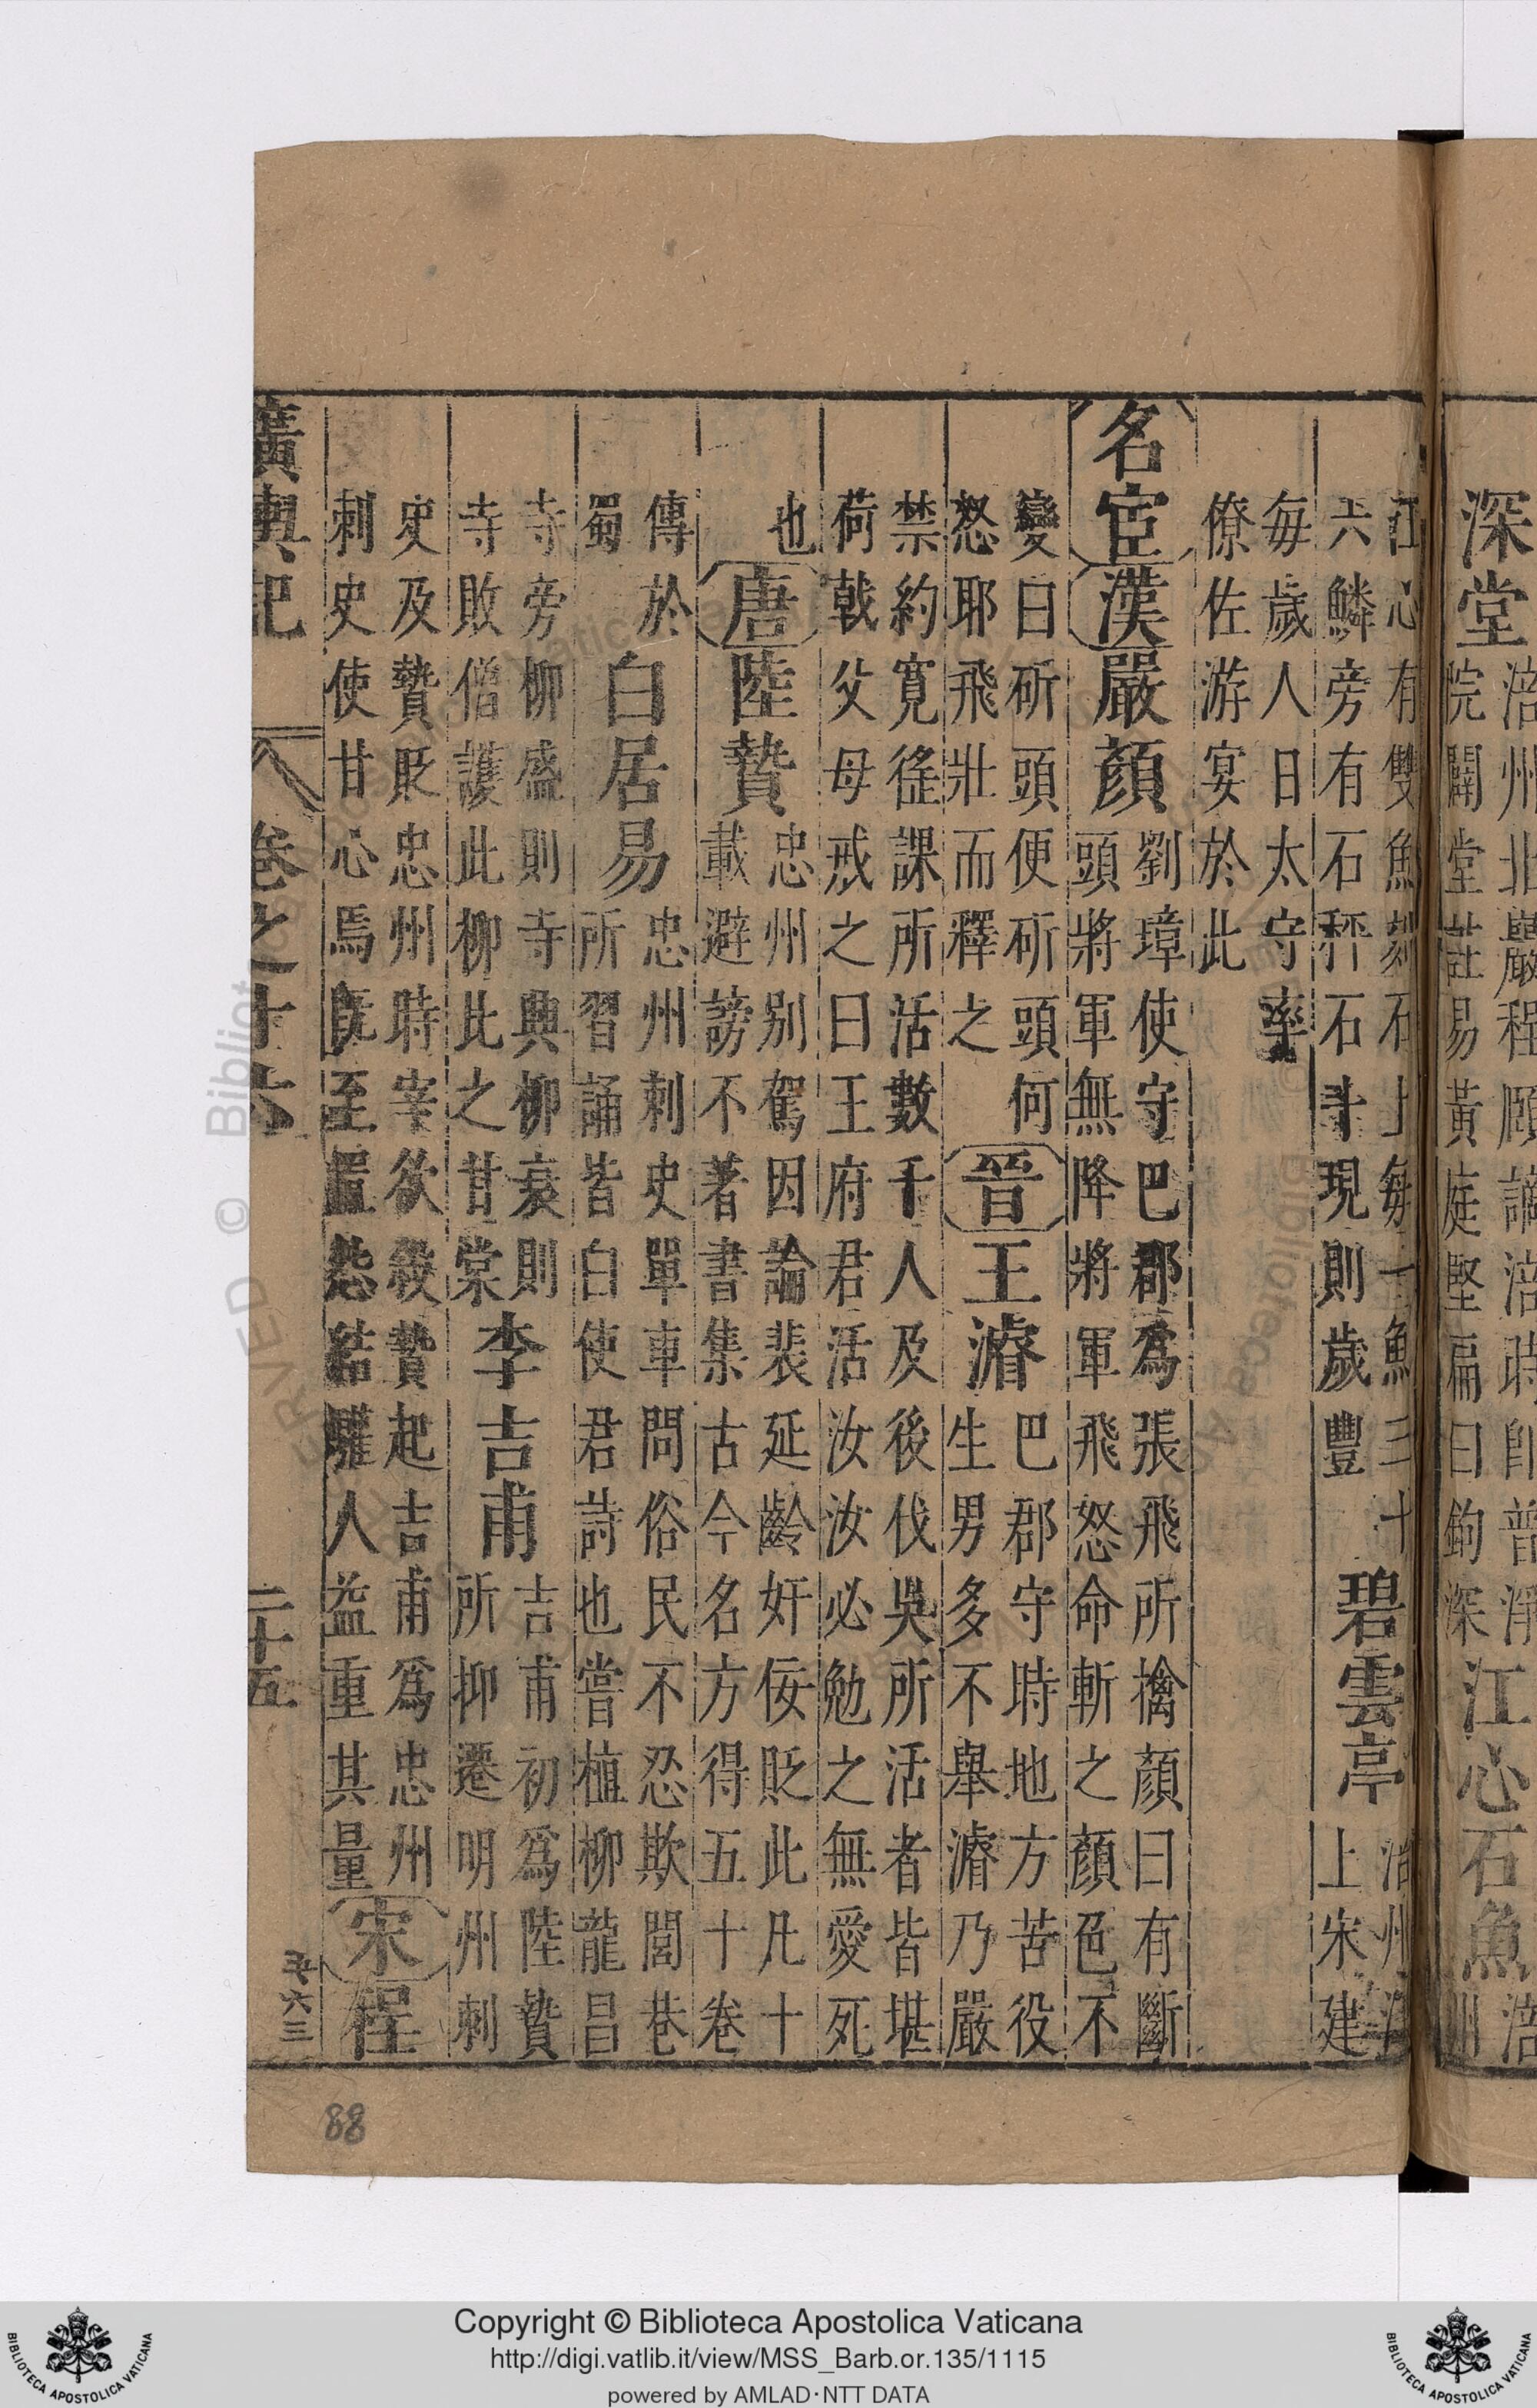 深堂 涪州北巖程頤謫涪時即普淨
院闢堂註易黃庭堅扁曰鉤深 江心石魚 涪
州
江心有雙魚刻石上每一魚三十
六鱗旁有石秤石斗現則歲豐 碧雲亭 涪州
上宋建
每歲人日太守率
僚佐游宴於此
名宦 漢 嚴顏 劉璋使守巴郡為張飛所擒顏曰有斷
頭將軍無降將軍飛怒命斬之顏色不
變曰斫頭便斫頭何
怒耶飛壯而釋之 晉 王濬 巴郡守時地方苦役
生男多不舉濬乃嚴
禁約寬徭課所活數千人及後伐吳所活者皆堪
荷戟父母戒之曰王府君活汝汝必勉之無愛死
也
唐 陸贄 忠州別駕因論裴延齡奸佞貶此凡十
載避謗不著書集古今名方得五十卷
傳於
蜀 白居易 忠州刺史單車問俗民不忍欺閭巷
所習誦皆白使君詩也嘗植柳龍昌
寺旁柳盛則寺興柳衰則
寺敗僧護此柳比之甘棠 李吉甫 吉甫初為陸贄
所抑遷明州刺
史及贄貶忠州時宰欲殺贄起吉甫為忠州
刺史使甘心焉既至置怨結驩人益重其量 宋 程
廣輿記 卷之十六 二十五
六三
88
Copyright © Biblioteca Apostolica Vaticana
http://digi.vatlib.it/view/MSS_Barb.or.135/1115
powered by AMLAD·NTT DATA
BIBLIOTECA APOSTOLICA VATICANA
BIBLIOTECA APOSTOLICA VATICANA